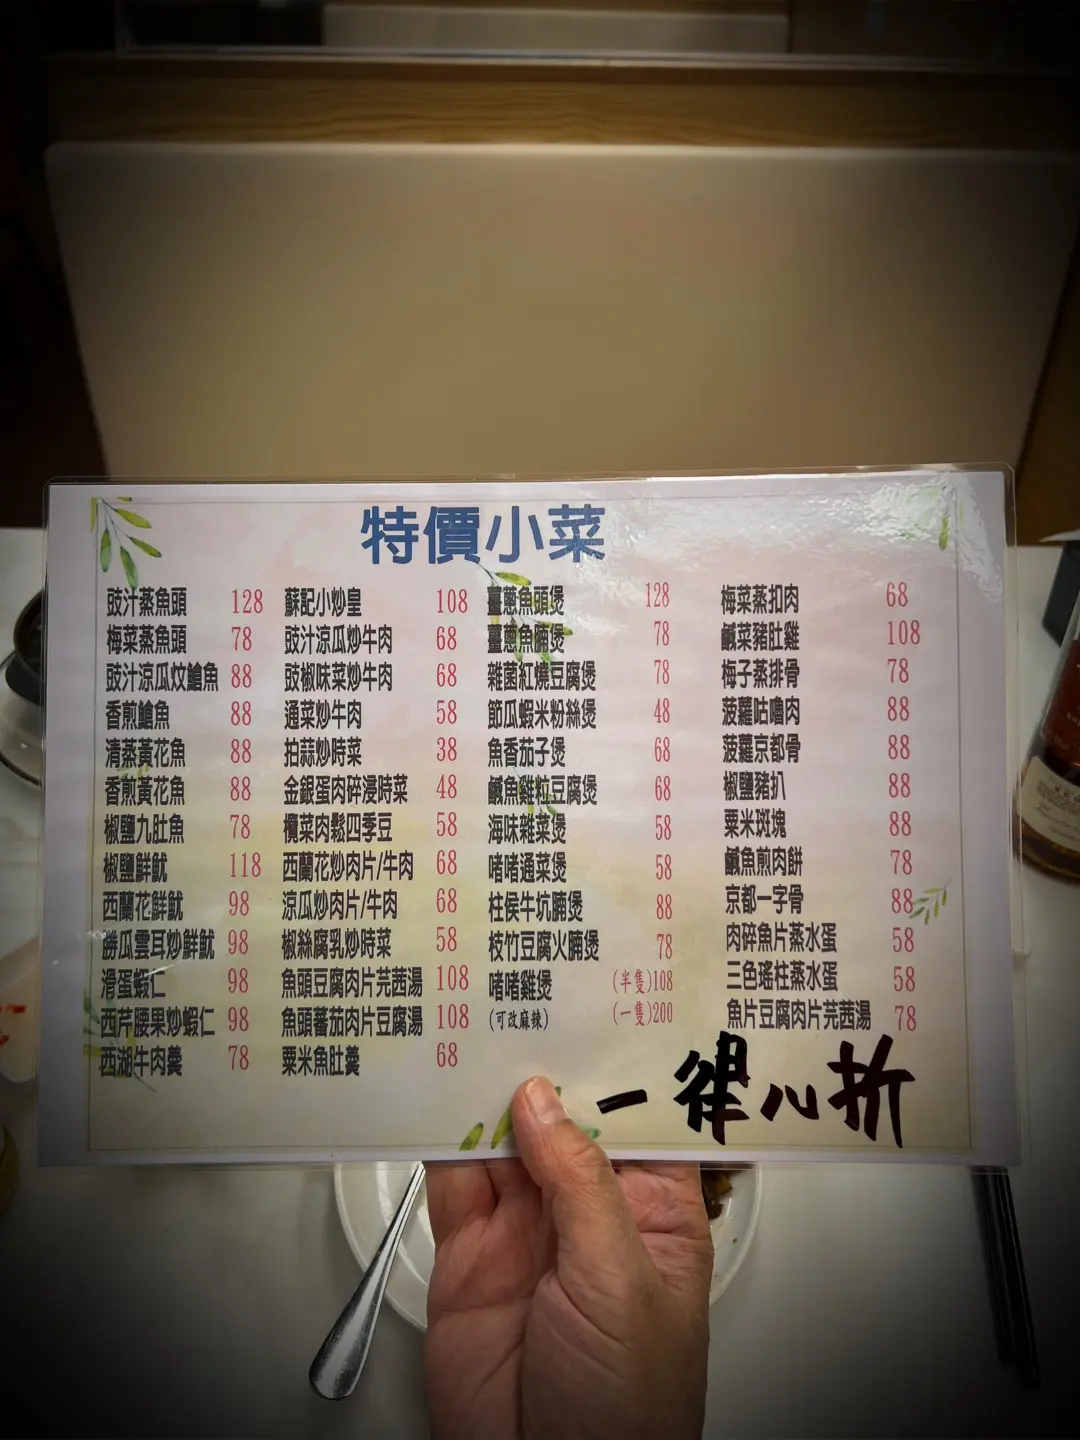 特價小菜
豉汁蒸魚頭 128
梅菜蒸魚頭 78
豉汁涼瓜炆鱠魚 88
香煎鱠魚 88
清蒸黃花魚 88
香煎黃花魚 88
椒鹽九肚魚 78
椒鹽鮮魷 118
西蘭花鮮魷 98
勝瓜雲耳炒鮮魷 98
滑蛋蝦仁 98
西芹腰果炒蝦仁 98
西湖牛肉羹 78
蘇記小炒皇 108
豉汁涼瓜炒牛肉 68
豉椒味菜炒牛肉 68
通菜炒牛肉 58
拍蒜炒時菜 38
金銀蛋肉碎浸時菜 48
欖菜肉鬆四季豆 58
西蘭花炒肉片/牛肉 68
涼瓜炒肉片/牛肉 68
椒絲腐乳炒時菜 58
魚頭豆腐肉片芫茜湯 108
魚頭蕃茄肉片豆腐湯 108
粟米魚肚羹 68
薑蔥魚頭煲 128
薑蔥魚腩煲 78
雜菌紅燒豆腐煲 78
節瓜蝦米粉絲煲 48
魚香茄子煲 68
鹹魚雞粒豆腐煲 68
海味雜菜煲 58
啫啫通菜煲 58
柱侯牛坑腩煲 88
枝竹豆腐火腩煲 78
啫啫雞煲 (半隻)108
(可改麻辣) (一隻)200
梅菜蒸扣肉 68
鹹菜豬肚雞 108
梅子蒸排骨 78
菠蘿咕嚕肉 88
菠蘿京都骨 88
椒鹽豬扒 88
粟米斑塊 88
鹹魚煎肉餅 78
京都一字骨 88
肉碎魚片蒸水蛋 58
三色瑤柱蒸水蛋 58
魚片豆腐肉片芫茜湯 78
一律八折